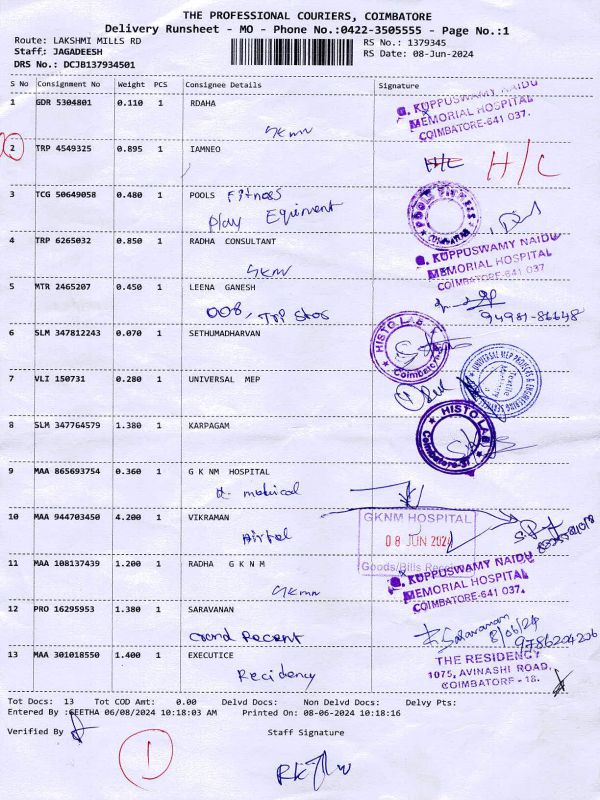 THE PROFESSIONAL COURIERS, COIMBATORE
Delivery Runsheet - MO - Phone No.:0422-3505555 - Page No.:1
Route: LAKSHMI MILLS RD
RS No.: 1379345
Staff: JAGADEESH
RS Date: 08-Jun-2024
DRS No.: DCJB137934501
S No Consignment No Weight PCS Consignee Details Signature
1 GDR 5304801 0.110 1 RDAHA
G. KUPPUSWAMY NAIDU
MEMORIAL HOSPITAL
COIMBATORE-641 037.
GKMN
2 TRP 4549325 0.895 1 IAMNEO
H/C H/C
3 TCG 50649058 0.480 1 POOLS Fitness
Play Equipment
POOLS FITNESS
COIMBATORE
4 TRP 6265032 0.850 1 RADHA CONSULTANT
GKMN
G. KUPPUSWAMY NAIDU
MEMORIAL HOSPITAL
COIMBATORE-641 037
5 MTR 2465207 0.450 1 LEENA GANESH
94981-86648
6 SLM 347812243 0.070 1 SETHUMADHARVAN
HISTO LAB
Coimbatore
7 VLI 150731 0.280 1 UNIVERSAL MEP
1
UNIVERSAL MEP PROJECTS & ENGINEERING SERVICES
Textile
8 SLM 347764579 1.380 1 KARPAGAM
HISTO LAB
Coimbatore-37
9 MAA 865693754 0.360 1 G K NM HOSPITAL
medical
10 MAA 944703450 4.200 1 VIKRAMAN
Airtel
GKNM HOSPITAL
08 JUN 2024
Goods/Bills Received
11 MAA 108137439 1.200 1 RADHA G K N M
GKMN
G. KUPPUSWAMY NAIDU
MEMORIAL HOSPITAL
COIMBATORE-641 037.
12 PRO 16295953 1.380 1 SARAVANAN
Grand Recent
Saravanan
8/06/24
9786204206
13 MAA 301018550 1.400 1 EXECUTICE
Recidency
THE RESIDENCY
1075, AVINASHI ROAD,
COIMBATORE - 18.
Tot Docs: 13 Tot COD Amt: 0.00 Delvd Docs: Non Delvd Docs: Delvy Pts:
Entered By :GEETHA 06/08/2024 10:18:03 AM Printed On: 08-06-2024 10:18:16
Verified By
Staff Signature
1